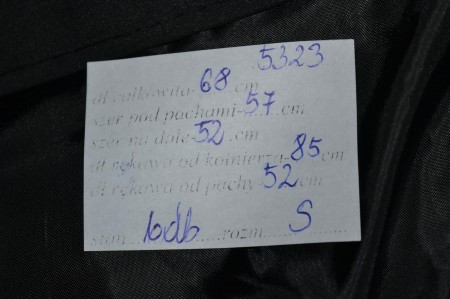 5323
dł całkowita-68 cm
szer pod pachami-57 cm
szer na dole-52 cm
dł rękawa od kołnierza-85 cm
dł rękawa od pachy-52 cm
stan....bdb......rozm....S..........